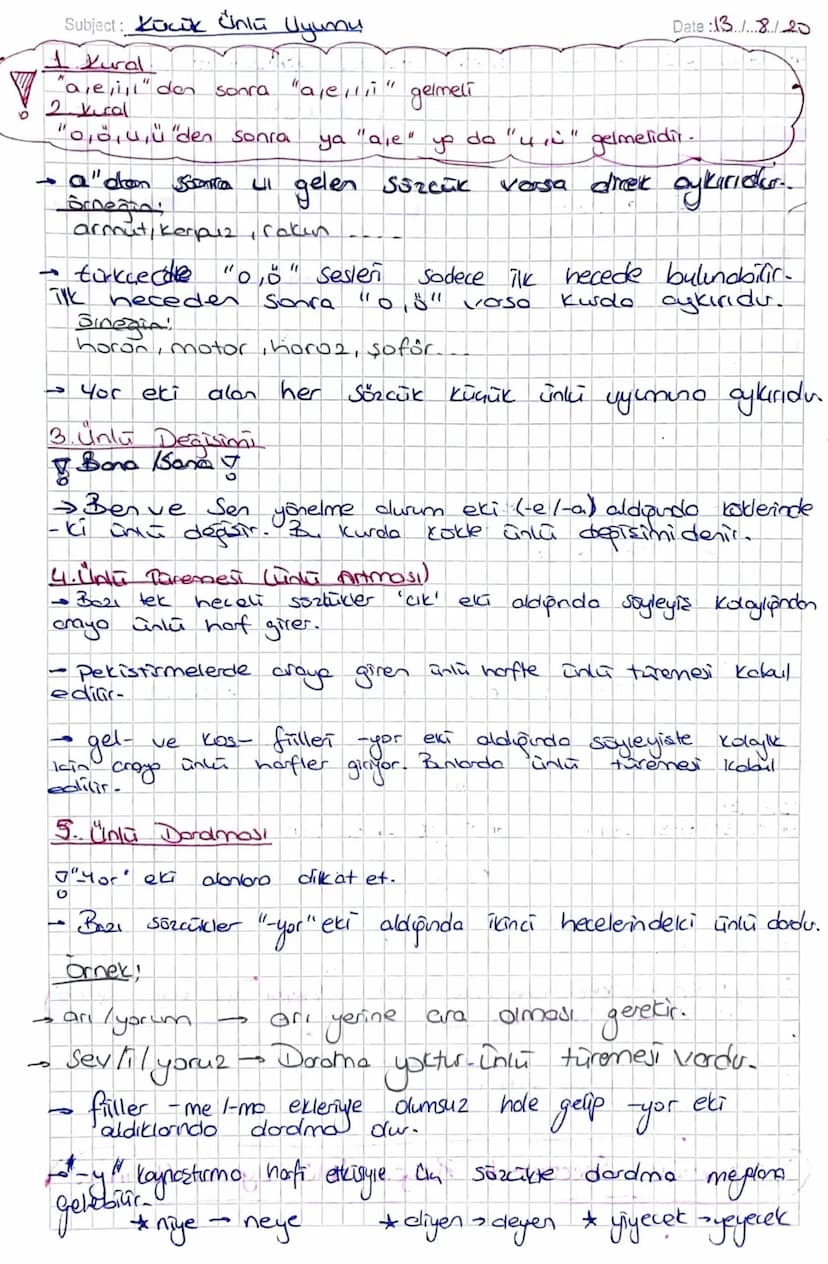 Subject : Küçük Ünlü Uyumu
Date : 13 / 8 / 20
1. Kural
"a,e,ı,i" den sonra "a,e,ı,i" gelmeli
2. kural
"o,ö,u,ü"den sonra ya "a,e" ya da "u,ü" gelmelidir.
→ a"dan sonra u gelen sözcük varsa direk aykırıdır.
örneğin;
armut, karpuz, rakun ....
→ türkçede "o,ö" sesleri sadece ilk hecede bulunabilir.
ilk heceden sonra "o,ö" varsa kurala aykırıdır.
örneğin;
horon, motor, horoz, şoför...
→ Yor eki alan her sözcük küçük ünlü uyumuna aykırıdır.
3. Ünlü Değişimi
! Bana /Sana !
→ Ben ve Sen yönelme durum eki (-e/-a) aldığında köklerinde
-ki ünlü değişir. Bu kurala kökte ünlü değişimi denir.
4. Ünlü Türemesi (Ünlü Artması)
→ Bazı tek heceli sözcükler 'cık' eki aldığında söyleyiş kolaylığından
araya ünlü harf girer.
- Pekiştirmelerde araya giren ünlü harfte ünlü türemesi kabul
edilir.
→ gel- ve koş- fiilleri -yor eki aldığında söyleyişte kolaylık
için araya ünlü harfler giriyor. Bunlarda ünlü türemesi kabul
edilir.
5. Ünlü Daralması
! "Yor" eki alanlara dikkat et.
→ Bazı sözcükler "-yor" eki aldığında ikinci hecelerindeki ünlü daralır.
Örnek;
→ arı /yorum → arı yerine ara olması gerekir.
→ Sev/i/yoruz → Daralma yoktur. Ünlü türemesi vardır.
→ fiiller -me /-ma ekleriyle olumsuz hale gelip -yor eki
aldıklarında daralma olur.
→ "-y" kaynaştırma harfi etkisiyle üç sözcükte daralma meydana
gelebilir.
* niye → neye * diyen → deyen * yiyecek → yeyecek